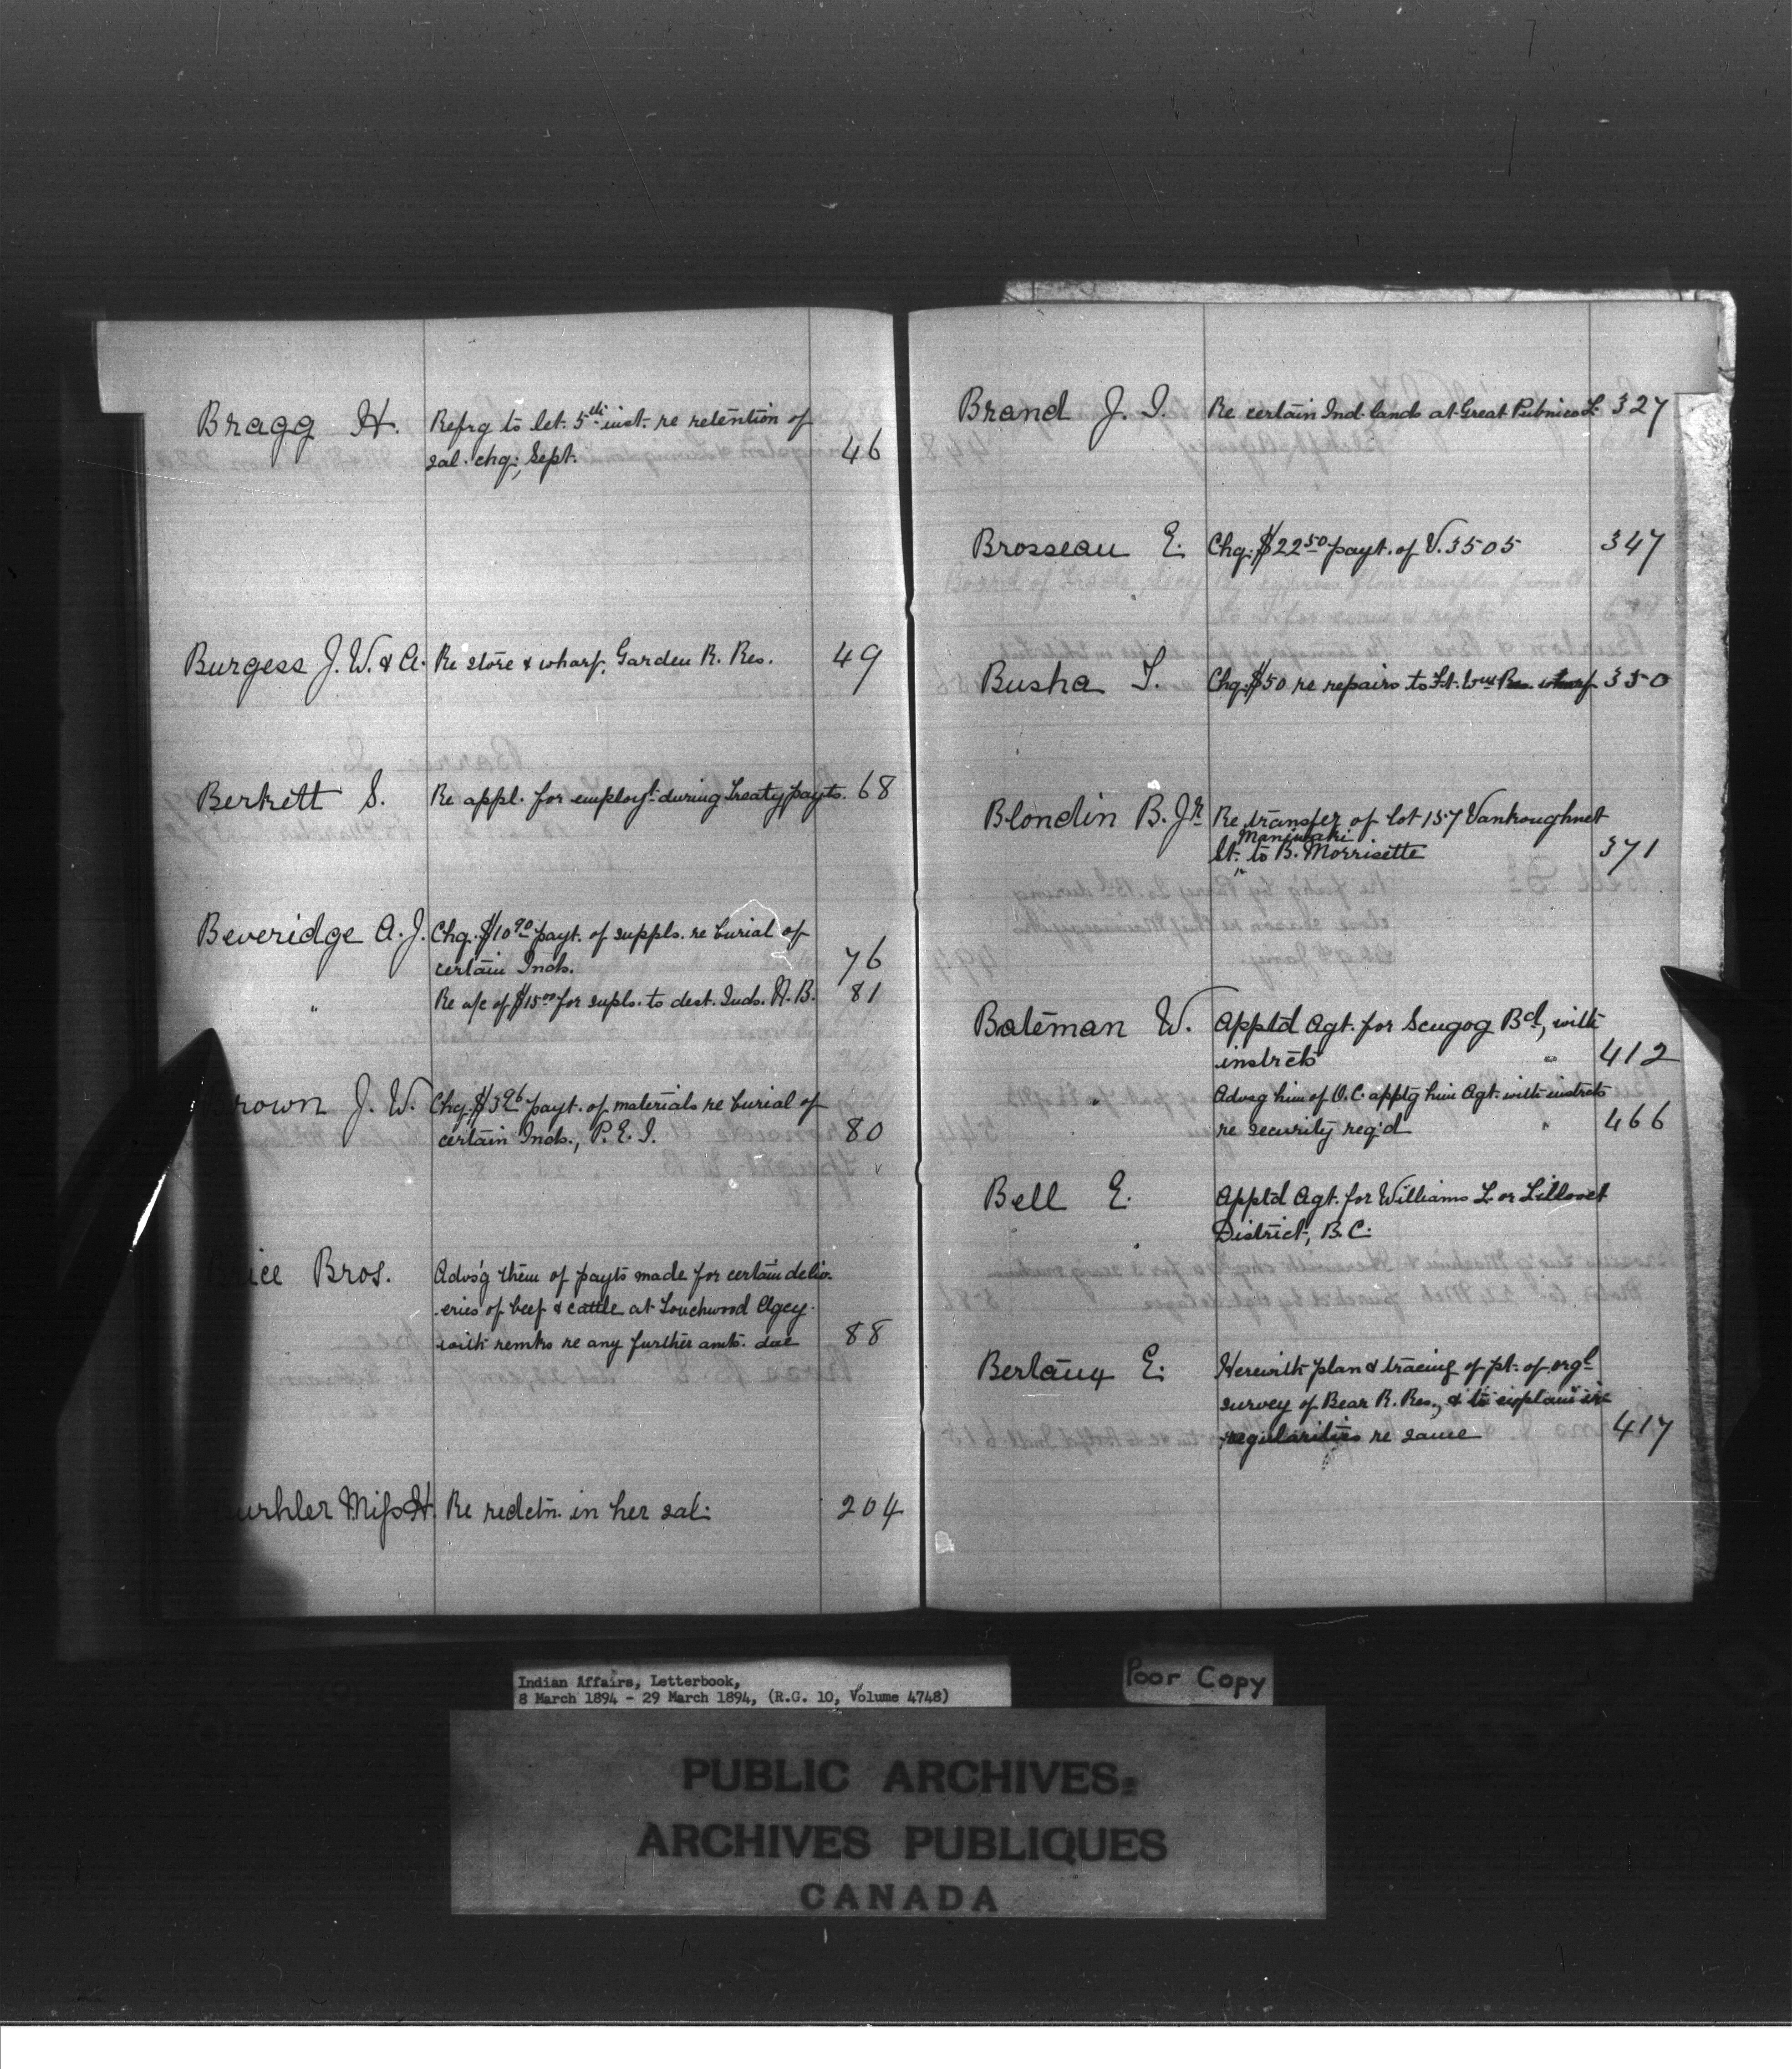 Bragg H. Refrg to let. 5th inst. re retention of
sal. chq., Sept. 46
Burgess J. W. & A. Re store & wharf, Garden R. Res. 49
Berkett S. Re appl. for employt. during Treaty payts. 68
Beveridge A. J. Chq. $10.90 payt. of suppls. re burial of
certain Inds. 76
" Re a/c of $15.00 for supls. to dest. Inds. N. B. 81
rown J. W. Chq. $3.96 payt. of materials re burial of
certain Inds., P. E. I. 80
rice Bros. Advs'g them of payts made for certain deliv-
-eries of beef & cattle at Touchwood Agcy.
with remks re any further amts. due 88
urhler Miss H. Re redctn. in her sal. 204
Brand J. I. Re certain Ind. lands at Great Pubnico L. 327
Brosseau E. Chq. $22.50 payt. of V. 3505 347
Busha T. Chq. $50 re repairs to Ft. Wm Res. wharf 350
Blondin B. Jr. Re transfer of lot 157 Vankoughnet
Maniwaki
St. to B. Morrisette 371
Bateman W. Apptd Agt. for Scugog Bd, with
instrcts " 412
" Advsg him of O. C. apptg him Agt. with instrcts
re security req'd " 466
Bell E. Apptd Agt. for Williams L. or Lillooet
District, B. C.
E. Herewith plan & tracing of pt. of orgl
survey of Bear R. Res., & to explain ir-
regularities re same 417
Indian Affairs, Letterbook,
8 March 1894 - 29 March 1894, (R.G. 10, Volume 4748)
Poor Copy
PUBLIC ARCHIVES
ARCHIVES PUBLIQUES
CANADA